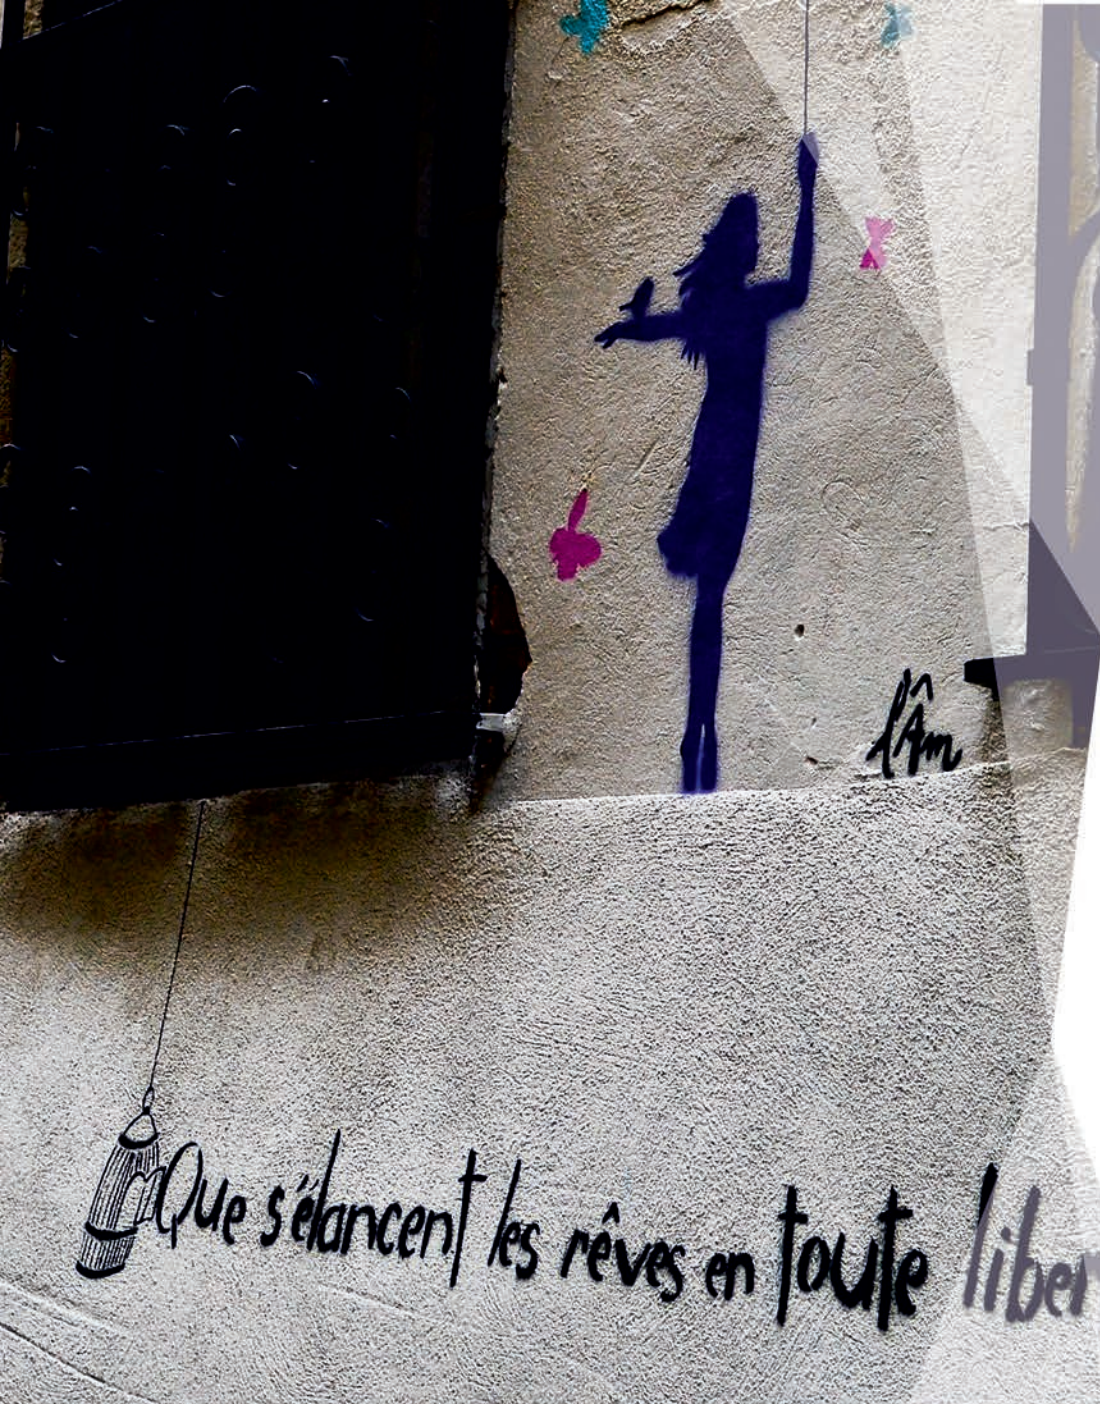 l'Âm
Que s'élancent les rêves en toute liber